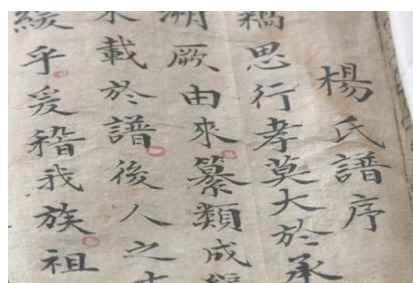 楊氏譜序
思行孝莫大於承
溯厥由來纂類成
載於譜後人之
緩乎爰稽我族祖